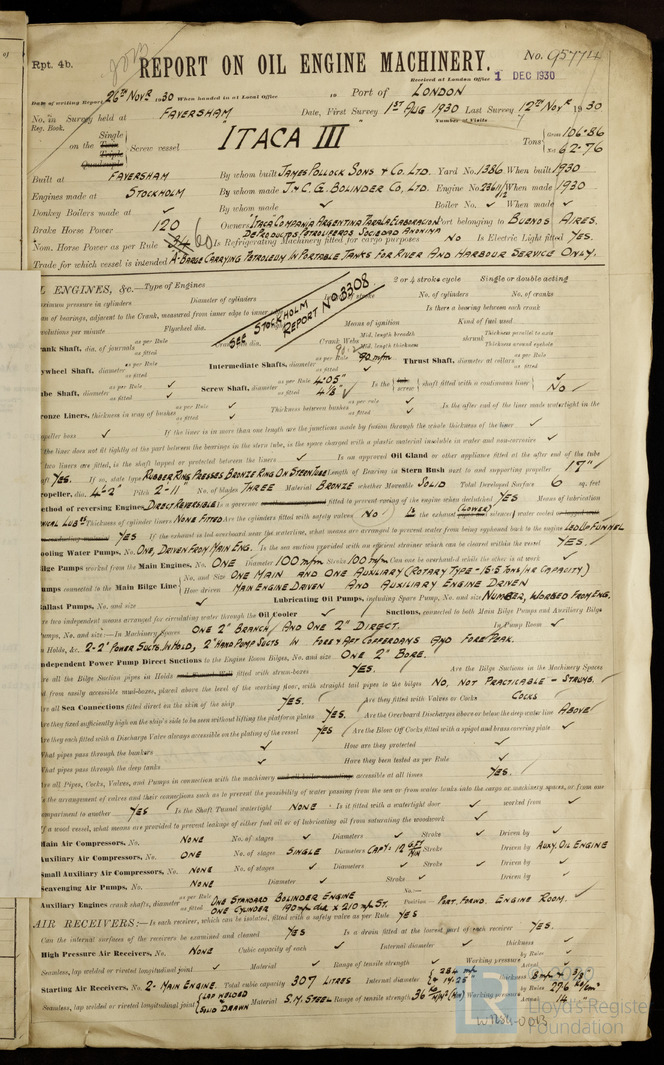 Rpt. 4b.
REPORT ON OIL ENGINE MACHINERY.
No. 95774
Received at London Office 1 DEC 1930
Date of writing Report 26TH NOVR 1930 When handed in at Local Office 19 Port of LONDON
No. in Survey held at FAVERSHAM Date, First Survey 1ST AUG 1930 Last Survey 12TH NOVR 1930
Reg. Book. Number of Visits
on the Single Twin Triple Quadruple Screw vessel ITACA III Tons Gross 106.86 Net 62.76
Built at FAVERSHAM By whom built JAMES POLLOCK SONS & CO. LTD. Yard No. 1386 When built 1930
Engines made at STOCKHOLM By whom made J. & C. G. BOLINDER CO, LTD. Engine No. When made 1930
Donkey Boilers made at ✓ By whom made ✓ Boiler No. ✓ When made ✓
Brake Horse Power 120 Owners "ITACA" COMPANIA ARGENTINA PARA LA ELABORACION DE PRODUCTOS PETROLIFEROS SOCIEDAD ANONIMA Port belonging to BUENOS AIRES.
Nom. Horse Power as per Rule 60 Is Refrigerating Machinery fitted for cargo purposes NO Is Electric Light fitted YES.
Trade for which vessel is intended A BARGE CARRYING PETROLEUM IN PORTABLE TANKS FOR RIVER AND HARBOUR SERVICE ONLY.
L ENGINES, &c.—Type of Engines 2 or 4 stroke cycle Single or double acting
ximum pressure in cylinders Diameter of cylinders of stroke No. of cylinders No. of cranks
n of bearings, adjacent to the Crank, measured from inner edge to inner Is there a bearing between each crank
SEE STOCKHOLM REPORT No 3308
volutions per minute Flywheel dia. Means of ignition Kind of fuel used
rank Shaft, dia. of journals as per Rule as fitted Crank Webs Mid. length breadth Mid. length thickness shrunk Thickness parallel to axis Thickness around eyehole
ywheel Shaft, diameter as per Rule as fitted Intermediate Shafts, diameter as per Rule as fitted 90 m/m Thrust Shaft, diameter at collars as per Rule as fitted
ube Shaft, diameter as per Rule as fitted ✓ Screw Shaft, diameter as per Rule 4.05" as fitted 4 1/8" ✓ Is the tube screw shaft fitted with a continuous liner NO
ronze Liners, thickness in way of bushes as per Rule as fitted ✓ Thickness between bushes as per Rule as fitted ✓ Is the after end of the liner made watertight in the
opeller boss ✓ If the liner is in more than one length are the junctions made by fusion through the whole thickness of the liner ✓
the liner does not fit tightly at the part between the bearings in the stern tube, is the space charged with a plastic material insoluble in water and non-corrosive ✓
two liners are fitted, is the shaft lapped or protected between the liners ✓ Is an approved Oil Gland or other appliance fitted at the after end of the tube
aft YES. If so, state type RUBBER RING PRESSES BRONZE RING ON STERN TUBE Length of Bearing in Stern Bush next to and supporting propeller 17"
ropeller, dia. 4-2" Pitch 2-11" No. of blades THREE Material BRONZE whether Moveable SOLID Total Developed Surface 6 sq. feet
ethod of reversing Engines DIRECT REVERSIBLE Is a governor fitted to prevent racing of the engine when declutched YES Means of lubrication
NICAL LUBR Thickness of cylinder liners NONE FITTED Are the cylinders fitted with safety valves NO Is the exhaust (LOWER) water cooled or lagged with
YES If the exhaust is led overboard near the waterline, what means are arranged to prevent water from being syphoned back to the engine LED UP FUNNEL
ooling Water Pumps, No. ONE, DRIVEN FROM MAIN ENG. Is the sea suction provided with an efficient strainer which can be cleared within the vessel YES.
ilge Pumps worked from the Main Engines, No. ONE Diameter 100 m/m Stroke 100 m/m Can one be overhauled while the other is at work ✓
umps connected to the Main Bilge Line No. and Size ONE MAIN AND ONE AUXILIARY (ROTARY TYPE - 16.5 TONS/HR CAPACITY)
How driven MAIN ENGINE DRIVEN AND AUXILIARY ENGINE DRIVEN
allast Pumps, No. and size ✓ Lubricating Oil Pumps, including Spare Pump, No. and size NUMBER, WORKED FROM ENG.
re two independent means arranged for circulating water through the Oil Cooler ✓ Suctions, connected to both Main Bilge Pumps and Auxiliary Bilge
umps, No. and size:—In Machinery Spaces ONE 2" BRANCH AND ONE 2" DIRECT. In Pump Room ✓
n Holds, &c. 2-2" POWER SUCTS IN HOLD, 2" HAND PUMP SUCTS IN FORE & AFT COFFERDAMS AND FORE PEAK.
ndependent Power Pump Direct Suctions to the Engine Room Bilges, No. and size ONE 2" BORE.
re all the Bilge Suction pipes in Holds and Tunnel Well fitted with strum-boxes YES. Are the Bilge Suctions in the Machinery Spaces
d from easily accessible mud-boxes, placed above the level of the working floor, with straight tail pipes to the bilges NO, NOT PRACTICABLE - STRUMS.
re all Sea Connections fitted direct on the skin of the ship YES. Are they fitted with Valves or Cocks COCKS
re they fixed sufficiently high on the ship's side to be seen without lifting the platform plates YES. Are the Overboard Discharges above or below the deep water line ABOVE
re they each fitted with a Discharge Valve always accessible on the plating of the vessel YES Are the Blow Off Cocks fitted with a spigot and brass covering plate ✓
hat pipes pass through the bunkers ✓ How are they protected ✓
hat pipes pass through the deep tanks ✓ Have they been tested as per Rule ✓
re all Pipes, Cocks, Valves, and Pumps in connection with the machinery and all boiler mountings accessible at all times YES.
s the arrangement of valves and their connections such as to prevent the possibility of water passing from the sea or from water tanks into the cargo or machinery spaces, or from one
ompartment to another YES Is the Shaft Tunnel watertight NONE Is it fitted with a watertight door ✓ worked from ✓
f a wood vessel, what means are provided to prevent leakage of either fuel oil or of lubricating oil from saturating the woodwork ✓
ain Air Compressors, No. NONE No. of stages ✓ Diameters ✓ Stroke ✓ Driven by ✓
uxiliary Air Compressors, No. ONE No. of stages SINGLE Diameters CAPY: 12 C.FT MIN Stroke Driven by AUXY. OIL ENGINE
mall Auxiliary Air Compressors, No. NONE No. of stages ✓ Diameters ✓ Stroke ✓ Driven by ✓
cavenging Air Pumps, No. NONE Diameter ✓ Stroke ✓ Driven by ✓
uxiliary Engines crank shafts, diameter as per Rule as fitted ONE STANDARD BOLINDER ENGINE ONE CYLINDER 190 m/m dia. x 210 m/m ST. No.— Position— PORT, FORWD. ENGINE ROOM.
AIR RECEIVERS:—Is each receiver, which can be isolated, fitted with a safety valve as per Rule YES
Can the internal surfaces of the receivers be examined and cleaned YES Is a drain fitted at the lowest part of each receiver YES.
High Pressure Air Receivers, No. NONE Cubic capacity of each ✓ Internal diameter ✓ thickness ✓
Seamless, lap welded or riveted longitudinal joint ✓ Material ✓ Range of tensile strength ✓ Working pressure by Rules Actual
Starting Air Receivers, No. 2- MAIN ENGINE. Total cubic capacity 307 LITRES Internal diameter 284 m/m & 14.25" thickness 8 m/m & 3/8"
Seamless, lap welded or riveted longitudinal joint LAP WELDED SOLID DRAWN Material S.M. STEEL Range of tensile strength 36 KG/MM² (MIN) Working pressure by Rules 27.6 KG/CM² Actual 14
Lloyd's Register
Foundation
W1204-0013